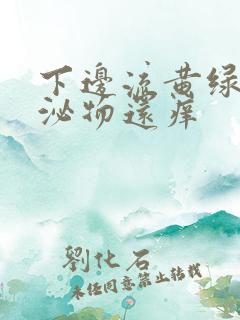 下邊流黄绿
泌物還痒
劉化石
未经同意禁止转载